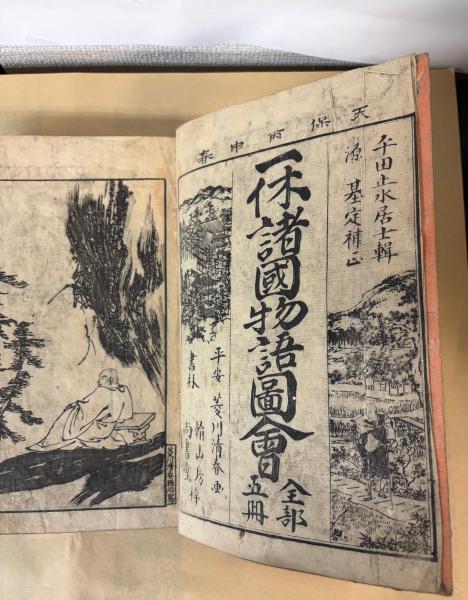 天保丙申春
平田止水居士輯
源 基定補正
一休諸國物語圖會
全部
五冊
平安 菱川清春画
書林
尚書堂